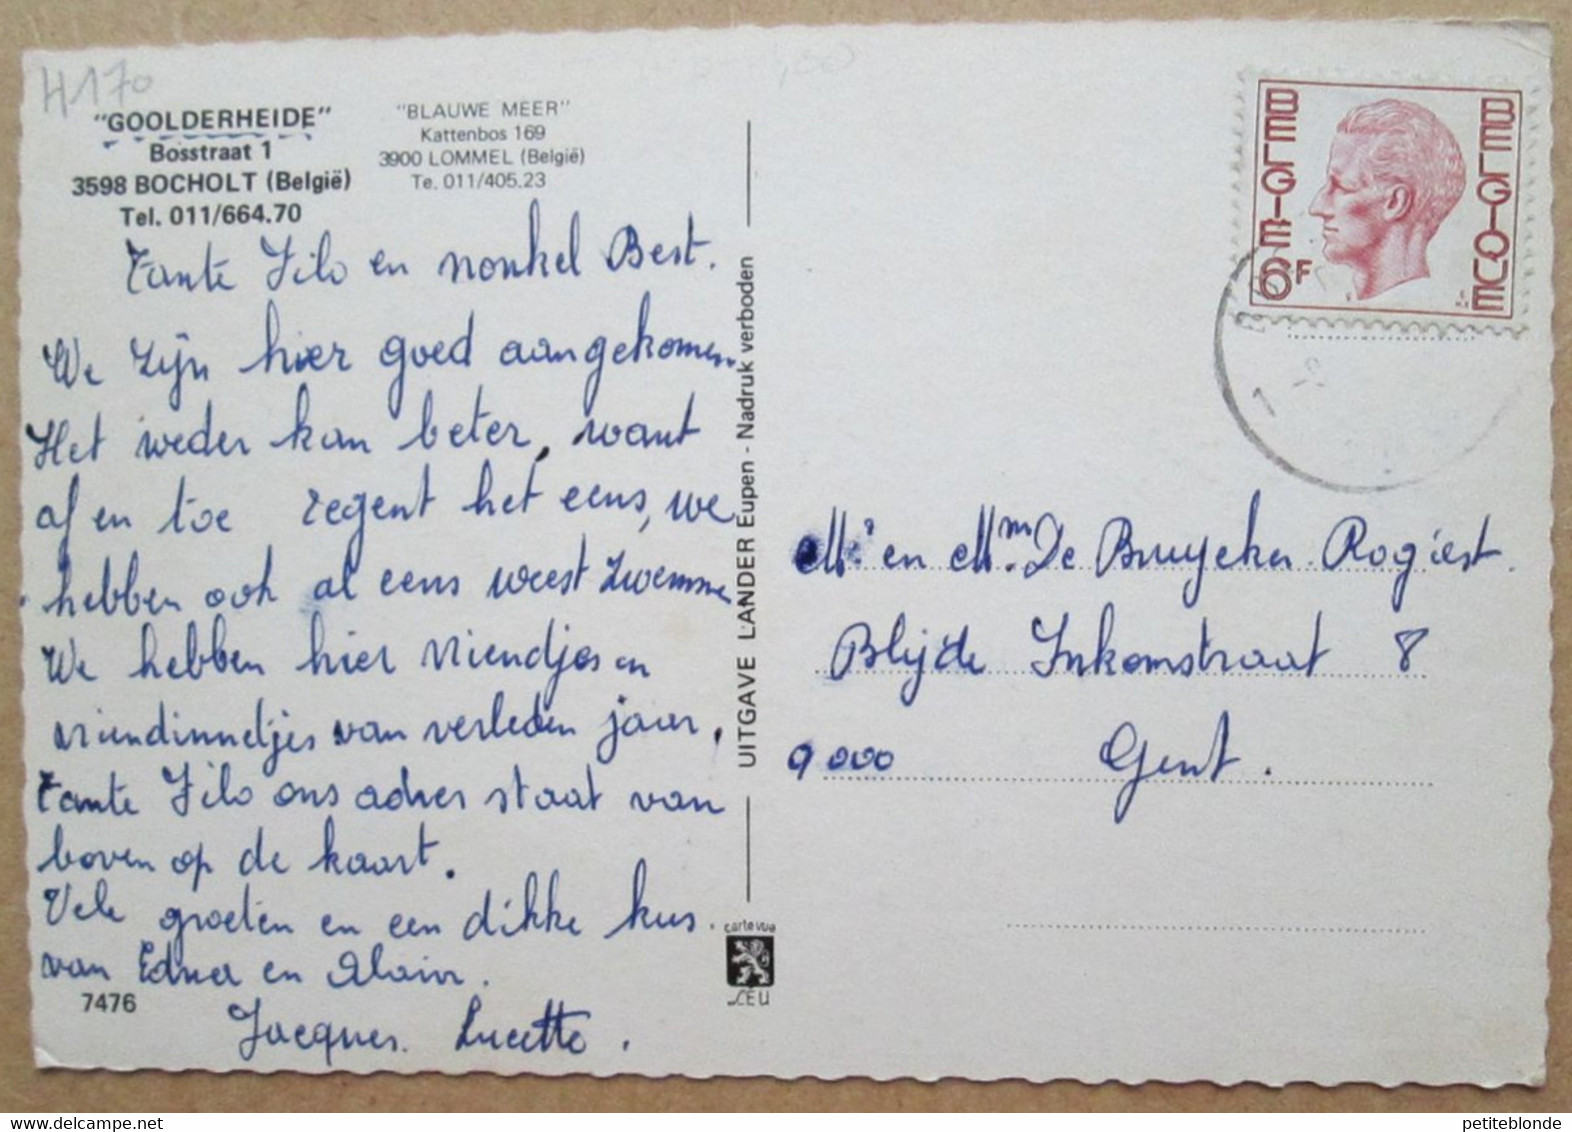 H170
"GOOLDERHEIDE"
Bosstraat 1
3598 BOCHOLT (België)
Tel. 011/664.70
"BLAUWE MEER"
Kattenbos 169
3900 LOMMEL (België)
Te. 011/405.23
Tante Filo en nonkel Best.
We zijn hier goed aangekomen.
Het weder kan beter, want
af en toe regent het eens, we
hebben ook al eens weest zwemmen
We hebben hier vriendjes en
vriendinnetjes van verleden jaar.
Tante Filo ons adres staat van
boven op de kaart.
Vele groeten en een dikke kus.
van Edna en Alain.
Jacques. Lucette.
7476
UITGAVE LANDER Eupen - Nadruk verboden
carte vue
LEU
BELGIË BELGIQUE
6F
Mr en Mm. De Bruyeker. Rogiest.
Blijde Inkomstraat 8
9000 Gent.
petiteblonde